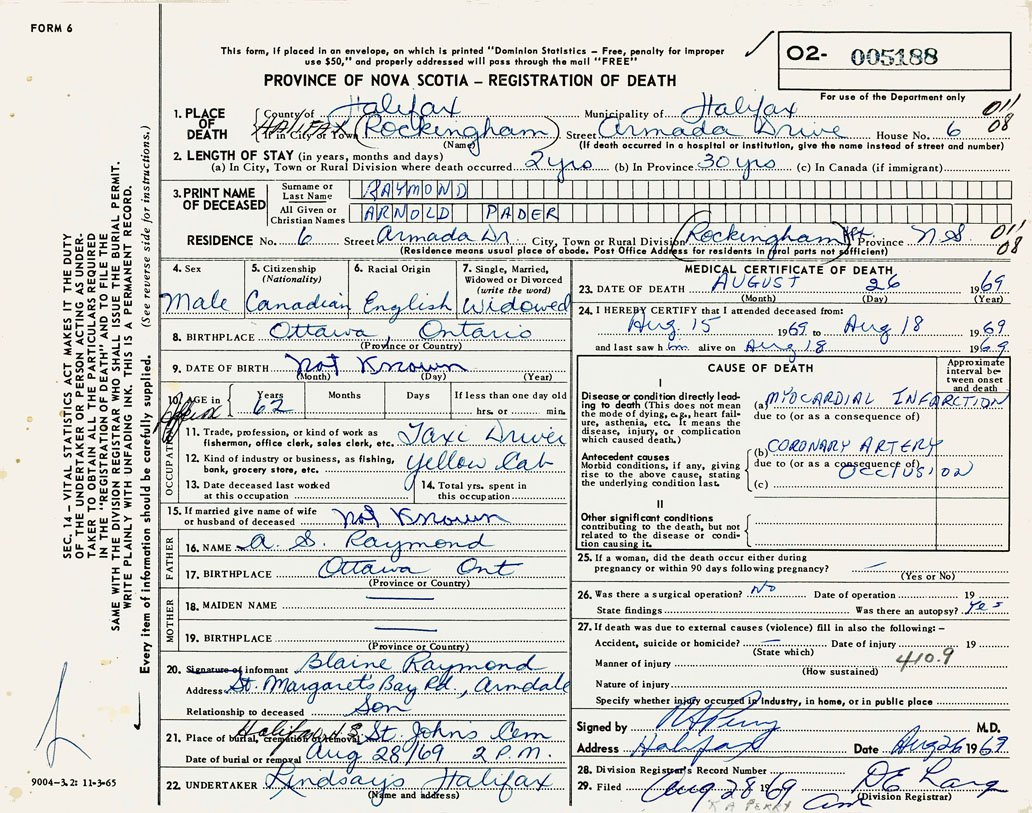 FORM 6
This form, if placed in an envelope, on which is printed "Dominion Statistics – Free, penalty for improper
use $50," and properly addressed will pass through the mail "FREE"
O2- 005188
For use of the Department only
PROVINCE OF NOVA SCOTIA – REGISTRATION OF DEATH
SEC. 14 – VITAL STATISTICS ACT MAKES IT THE DUTY
OF THE UNDERTAKER OR PERSON ACTING AS UNDER-
TAKER TO OBTAIN ALL THE PARTICULARS REQUIRED
IN THE "REGISTRATION OF DEATH" AND TO FILE THE
SAME WITH THE DIVISION REGISTRAR WHO SHALL ISSUE THE BURIAL PERMIT.
WRITE PLAINLY WITH UNFADING INK. THIS IS A PERMANENT RECORD.
Every item of information should be carefully supplied. (See reverse side for instructions.)
1. PLACE OF DEATH
County of Halifax Municipality of Halifax
HALIFAX If in City or Town (Rockingham) Street Armada Drive House No. 6 011 08
(Name) (If death occurred in a hospital or institution, give the name instead of street and number)
2. LENGTH OF STAY (in years, months and days)
(a) In City, Town or Rural Division where death occurred 2 yrs (b) In Province 30 yrs (c) In Canada (if immigrant)
3. PRINT NAME OF DECEASED
Surname or Last Name RAYMOND
All Given or Christian Names ARNOLD PADER
RESIDENCE No. 6 Street Armada Dr City, Town or Rural Division (Rockingham) Province N.S. 011 08
(Residence means usual place of abode. Post Office Address for residents in rural parts not sufficient)
4. Sex
Male
5. Citizenship
(Nationality)
Canadian
6. Racial Origin
English
7. Single, Married,
Widowed or Divorced
(write the word)
Widowed
8. BIRTHPLACE Ottawa, Ontario
(Province or Country)
9. DATE OF BIRTH Not Known
(Month) (Day) (Year)
10. AGE in Approx
Years 62 Months Days If less than one day old
hrs. or min.
OCCUPATION
11. Trade, profession, or kind of work as
fisherman, office clerk, sales clerk, etc. Taxi Driver
12. Kind of industry or business, as fishing,
bank, grocery store, etc. Yellow Cab
13. Date deceased last worked
at this occupation
14. Total yrs. spent in
this occupation
15. If married give name of wife
or husband of deceased Not Known
FATHER
16. NAME A. S. Raymond
17. BIRTHPLACE Ottawa Ont
(Province or Country)
MOTHER
18. MAIDEN NAME —
19. BIRTHPLACE —
(Province or Country)
20. Signature of informant Blaine Raymond
Address St. Margaret's Bay Rd, Armdale
Relationship to deceased Son
21. Place of burial, cremation or removal Halifax St. John's Cem
Date of burial or removal Aug 28/69 2 P.M.
22. UNDERTAKER Lindsay's Halifax
(Name and address)
9004–3.2: 11-3-65
MEDICAL CERTIFICATE OF DEATH
23. DATE OF DEATH AUGUST 26 1969
(Month) (Day) (Year)
24. I HEREBY CERTIFY that I attended deceased from:
Aug. 15 1969 to Aug 18 1969
and last saw him alive on Aug 18 1969
CAUSE OF DEATH
Approximate
interval be-
tween onset
and death
I
Disease or condition directly lead-
ing to death (This does not mean
the mode of dying, e.g., heart fail-
ure, asthenia, etc. It means the
disease, injury, or complication
which caused death.)
(a) MYOCARDIAL INFARCTION
due to (or as a consequence of)
Antecedent causes
Morbid conditions, if any, giving
rise to the above cause, stating
the underlying condition last.
(b) CORONARY ARTERY
due to (or as a consequence of)
OCCLUSION
(c)
II
Other significant conditions
contributing to the death, but not
related to the disease or condi-
tion causing it.
25. If a woman, did the death occur either during
pregnancy or within 90 days following pregnancy? —
(Yes or No)
26. Was there a surgical operation? No Date of operation 19
State findings Was there an autopsy? Yes
27. If death was due to external causes (violence) fill in also the following: –
Accident, suicide or homicide? — Date of injury 19
(State which)
Manner of injury 410.9
(How sustained)
Nature of injury
Specify whether injury occurred in industry, in home, or in public place
Signed by R A Perry M.D.
Address Halifax Date Aug 26 1969
28. Division Registrar's Record Number
29. Filed Aug 28 1969
(Division Registrar)
R A PERRY